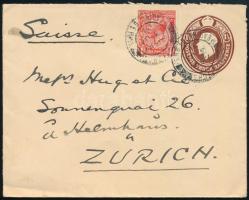 Suisse.
Messrs Hug et Co.
Sonnenquai 26.
à Helmhaus.
à
ZURICH.